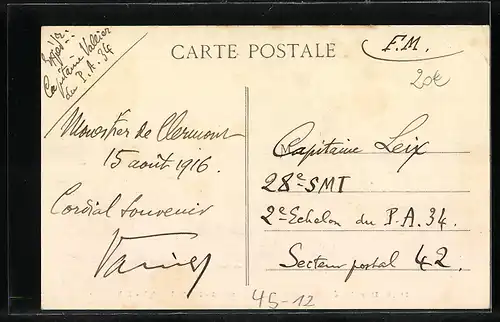 Expéd.r:
Capitaine Vallier
du P.A. 34
CARTE POSTALE
F.M.
20€
Monestier de Clermont
15 août 1916.
Cordial souvenir
Capitaine Leix
28e SMT
2e Echelon du P.A. 34.
Secteur postal 42.
45-12